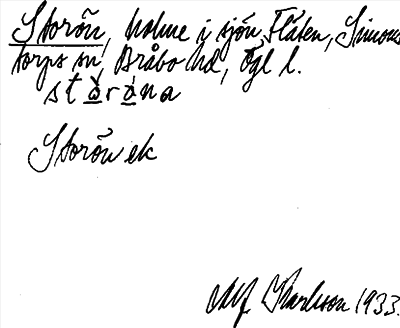 Storön, holme i sjön Flåten, Simons
torps sn, Bråbo hd, Ögl l.
stọ̀rọ́na
Storön ek
Alf. Karlsson 1933.